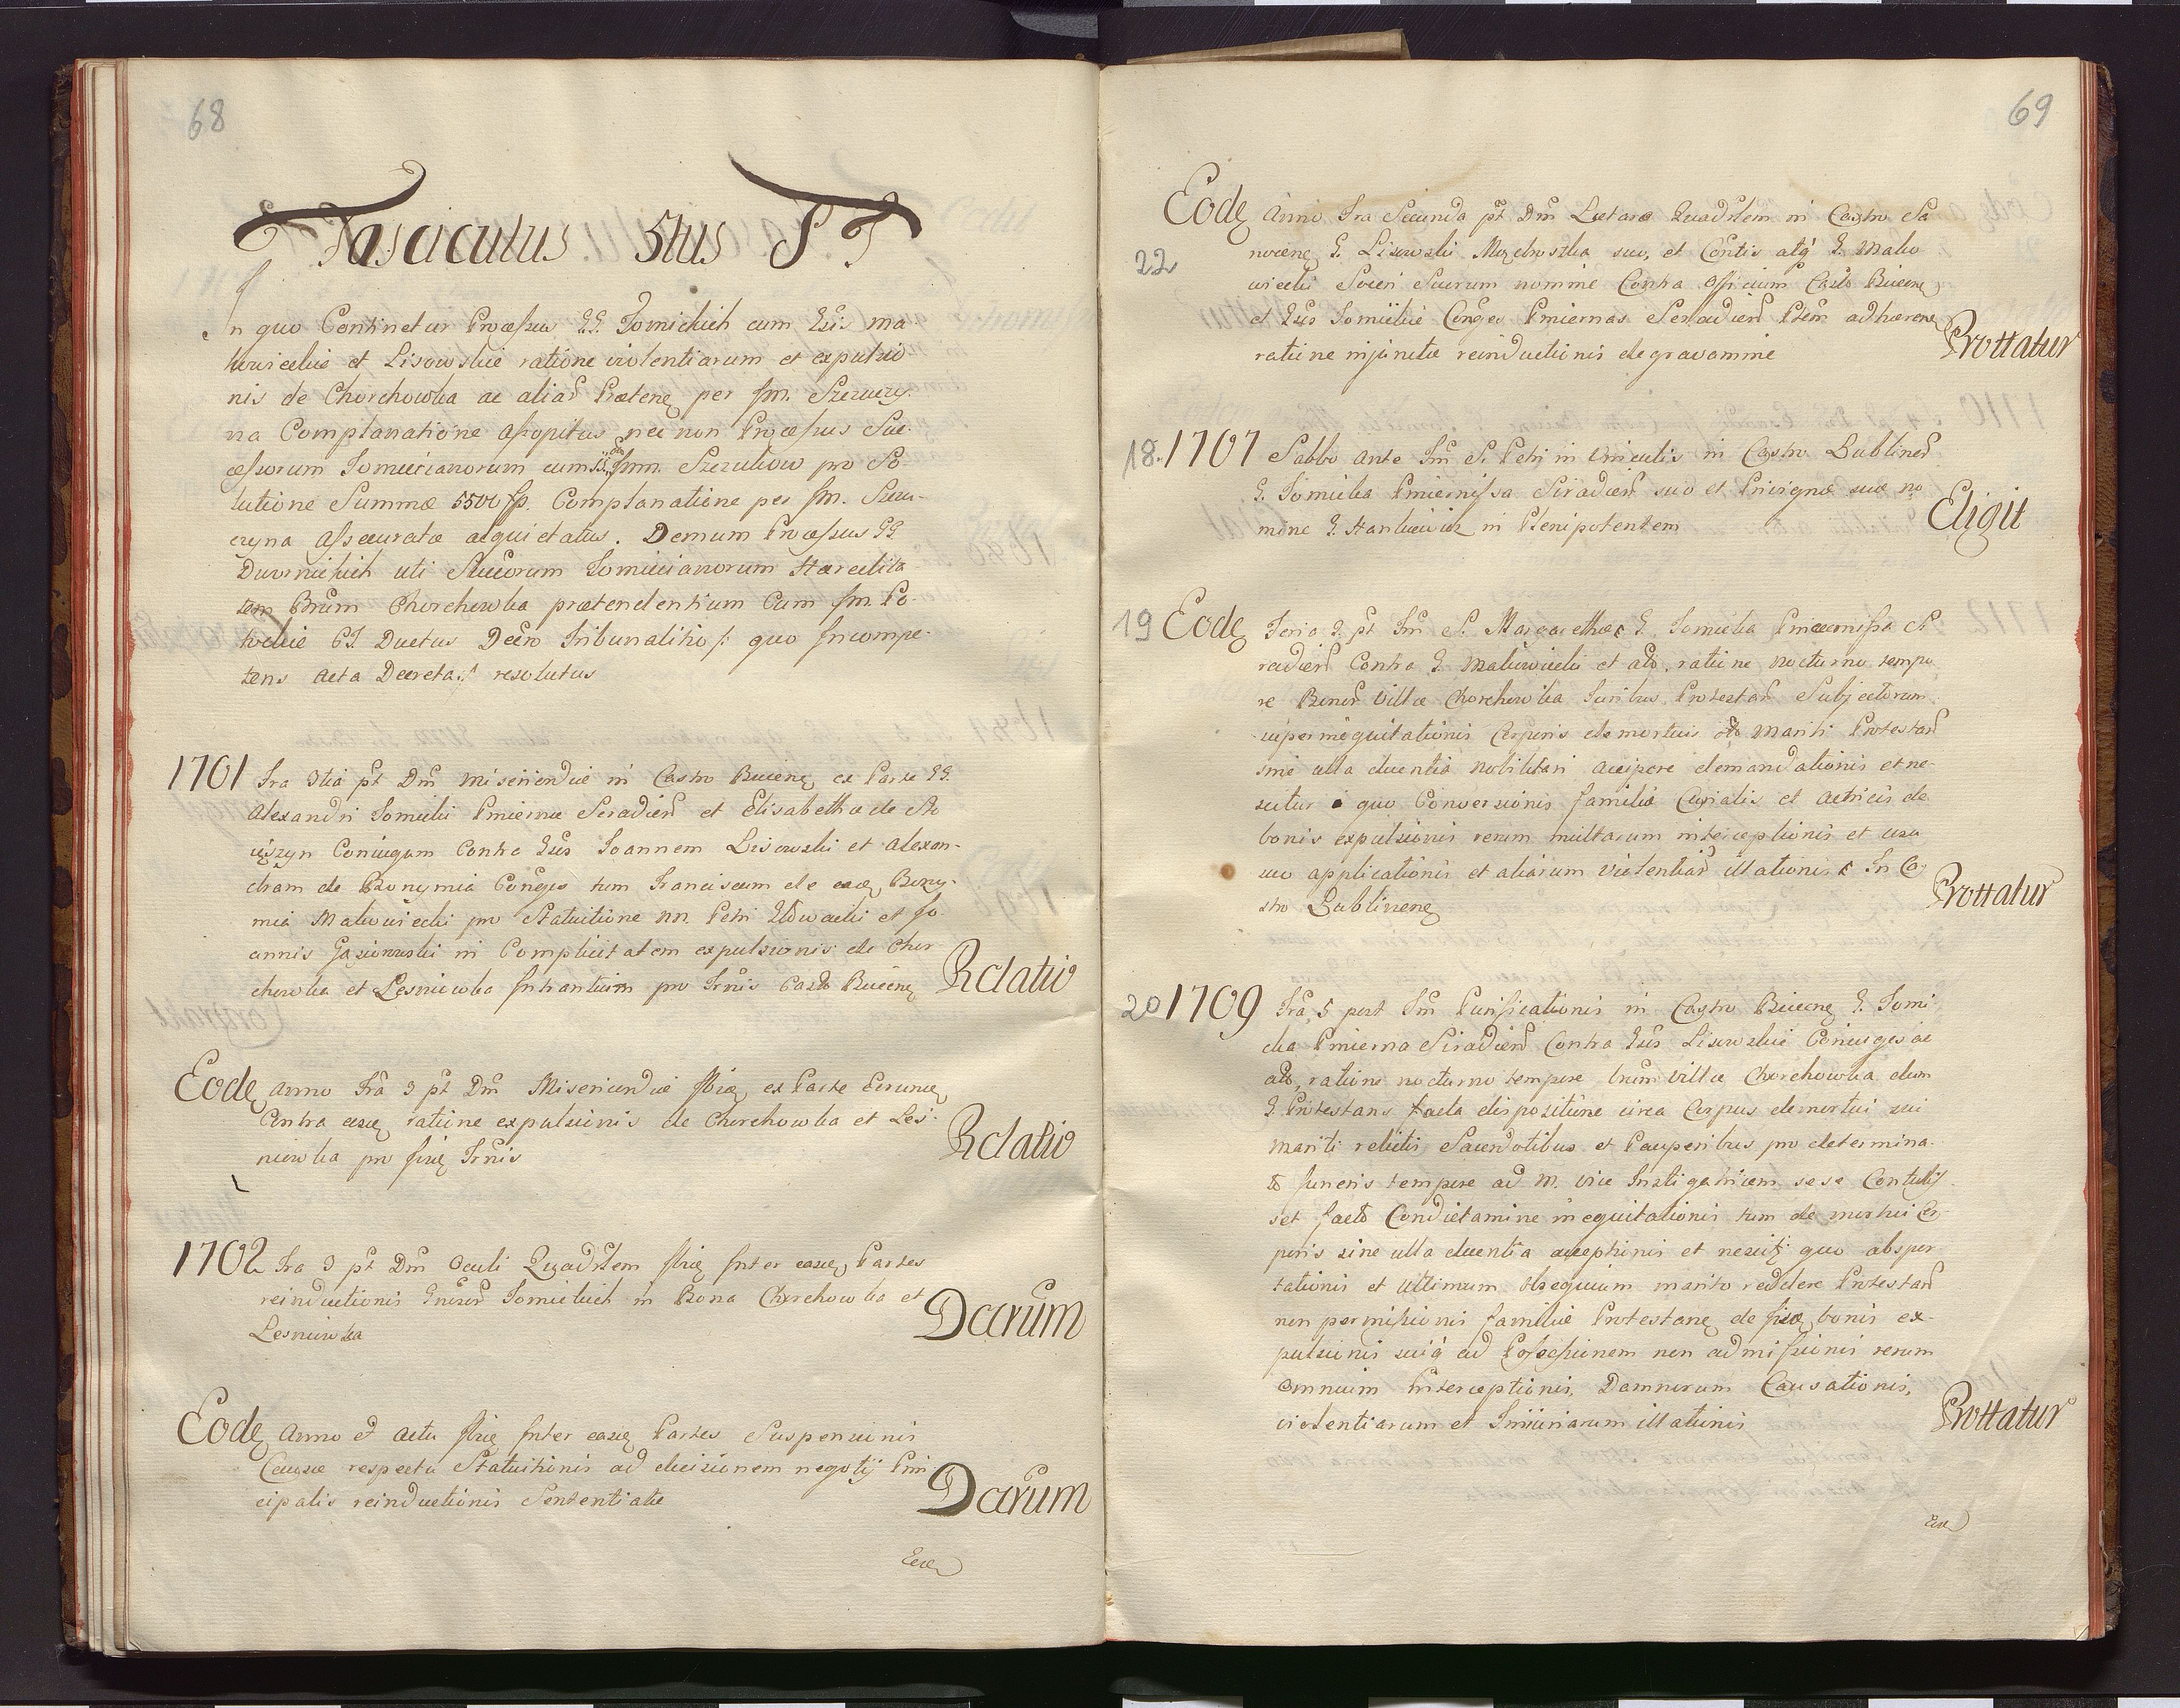 68
Fasciculus 5tus S T
In quo Continetur Processus GG. Tomickich cum Gsis Ma-
lowieckie et Lisowskie ratione violentiarum et expulsio
nis de Chorchowka ac aliad Prætens per Jm. Szczuczy-
na Complanatione assopitus nec non Processus Suc-
cessorum Tomicianorum cum Jmm. Szczutkow pro So-
lutione Summæ 5500 fp. Complanatione per Jm. Szczu-
czyna Assecuratæ acquietatus. Demum Processus GG.
Dwornickich uti Succorum Tomicianorum Hæredita-
tem Bnrum Chorchowka prætendentium Cum Jm. Po-
tockie PJ. Ductus Decro Tribunalitio /: quo Incompe-
tens Acta Decreta :/ resolutus
1701 Fra 3tia pt Dm Misericordiæ in Castro Biecens ex Parte GG.
Alexandri Tomicki Pincernæ Siradien et Elisabetha de
Coniugum Contra Gsos Joannem Lisowski et Alexan-
dram de Bonymia Conges tum Franciscum de eade Bony-
mia Malowiecki pro Statuitione nn. Petri et Jo-
annis Gasiorowski in Complicitatem expulsionis de Chor
chowka et Lesniowka Intrantium pro Trnis Casto Biecens
Relatio
Eode Anno Fra 3 pt Dm Misericordiæ ibide ex Parte Eerunde
Contra eosde ratione expulsionis de Chorchowka et Les-
niowka pro iisde Trnis
Relatio
1702 Fra 3 pt Dm Oculi Quadrlem ibide Inter easde Partes
reinductionis Gnsor Tomickich in Bona Chorchowka et
Lesniowka
Decrum
Eode Anno et Actu ibide Inter easde Partes Suspensionis
Causæ respectu Statuitionis ad decisionem negotij Prin
cipalis reinductionis Sententiatæ
Decrum
Eode
69
Eode Anno Fra Secunda pt Dm Lætare Quadrlem in Castro Sa
22
nocens G. Lisowski suo, et Contis atq G. Malo
wiecki Socri Suorum nomine Contra Officium Casto Biecens
et Gsos Tomickie Conges Pincernas Siradien Ptem adhærens
ratione injunctæ reinductionis de gravamine
Prottatur
18. 1707 Sabbo Ante Fm S. Petri in Vinculis in Castro Lublinen
G. Tomicka Pincernissa Siradien suo et Privignæ suæ no
mine G. Hankiewicz in Plenipotentem
Eligit
19 Eode Feria 3. pt Fm S. Margarethæ G. Tomicka Pincernissa Si
radien Contra G. Malowiecki et alo. ratione nocturno tempo
re Bonor Villæ Chorchowka Juribus Protestan Subjectorum
superinequitationis Corporis demortui Mariti Protestan
sine ulla decentia nobilitari accipere demandationis et ne-
scitur quo Conversionis familiæ Curialis et Actricis de
bonis expulsionis rerum multarum interceptionis et usu
suo applicationis et aliarum violentiar illationis In Ca
stro Lublinens
Prottatur
20 1709 Fra 5 post Fm Purificationis in Castro Biecens G. Tomi
cka Pincerna Siradien Contra Gsos Lisowskie Coniuges ac
alo, ratione nocturno tempore bnrum villæ Chorchowka dum
G. Protestans facta dispositione circa Corpus demortui sui
mariti relictis Sacerdotibus et Pauperibus pro determina-
to funeris tempore ad M. vice Instigatricem sese Contulis
set facto Condictamine inequitationis tum demortui Cor
poris sine ulla decentia acceptionis et nescitr quo abspor
tationis et Ultimum Obsequium marito reddere Protestan
non permissionis familiæ Protestans de iisde bonis ex-
pulsionis suiq ad Possessionem non admissionis rerum
omnium Interceptionis, Damnorum Causationis,
violentiarum et Iniuriarum illationis
Prottatur
Eode